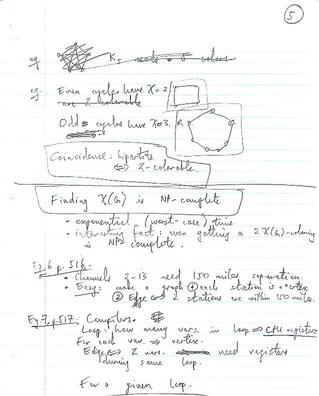 5
eg. K5 needs 5 colours
eg. Even cycles have χ = 2/
are 2 colorable
Odd cycles have χ=3.
Coincidence: bipartite
⟺ 2-colorable.
Finding χ(G) is NP-complete
• exponential (worst-case) time
• interesting fact: even getting a 2χ(G)-coloring
is NP complete.
Eg. 6 p. 516.
• Channels 2-13 need 150 miles separation.
• Easy: make a graph ① each station is a vertex
② Edge ⟺ 2 stations are within 150 miles.
Eg 7, p. 517. Compilers.
Loop: how many vars. in loop ⟹ CPU registers
For each var. ⟹ vertex.
Edge ⟺ 2 vars. need registers
during same loop.
For a given loop.